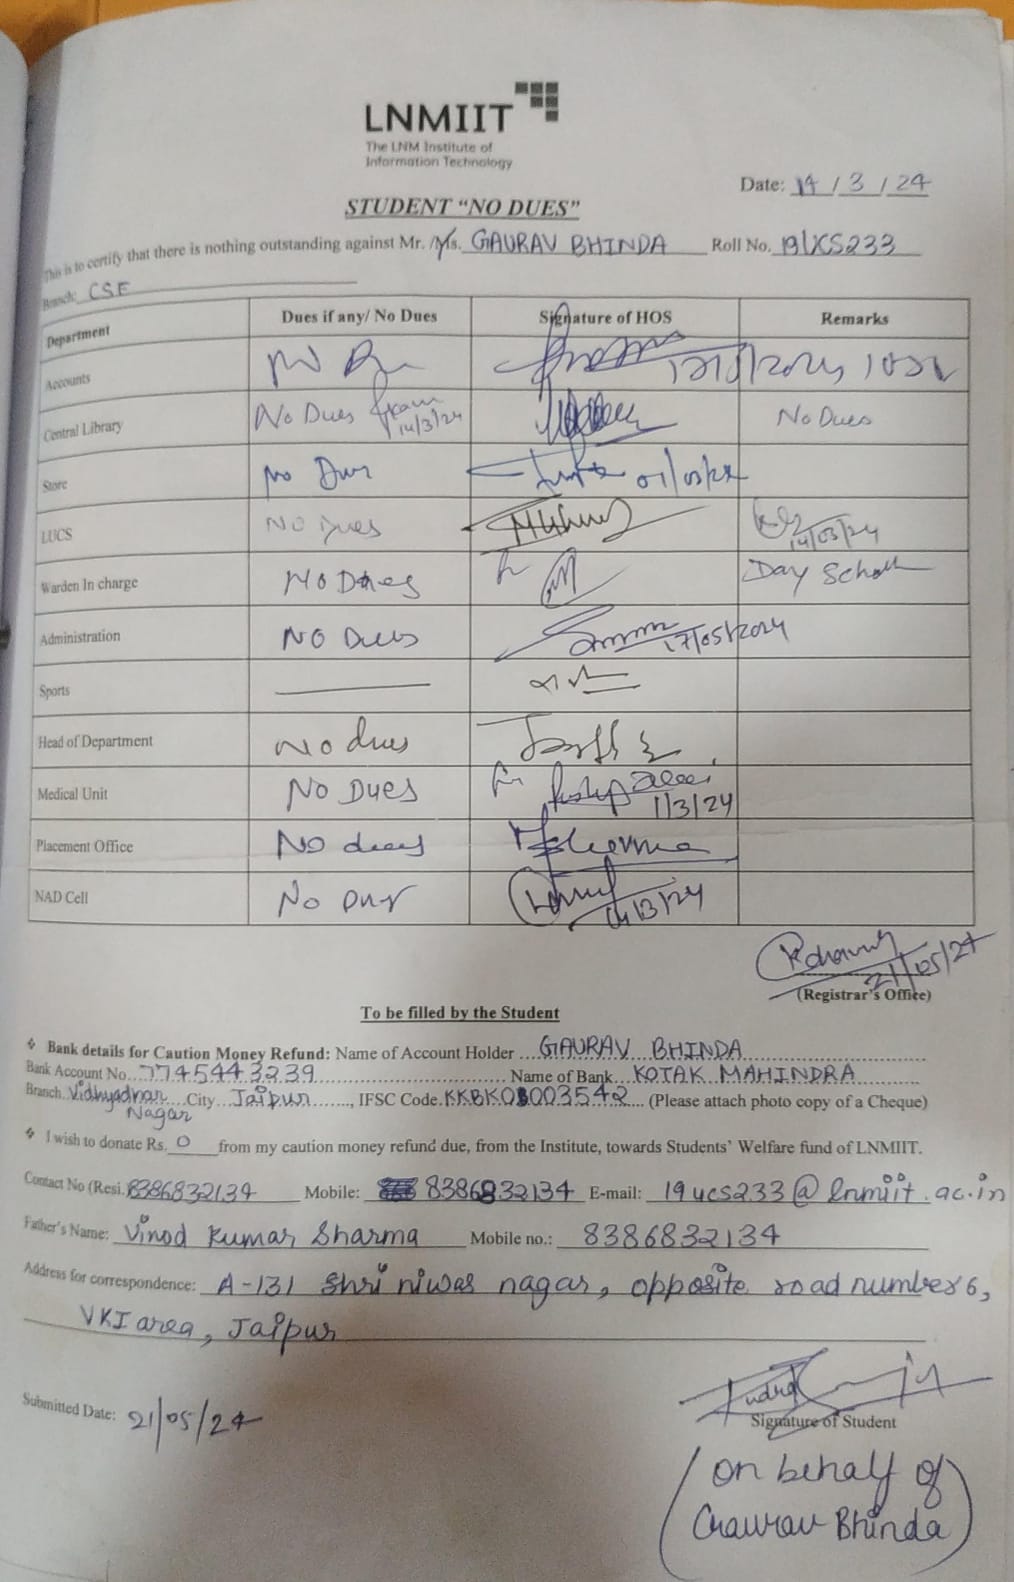 LNMIIT
The LNM Institute of
Information Technology
Date: 14 / 3 / 24
STUDENT "NO DUES"
This is to certify that there is nothing outstanding against Mr. /Ms. GAURAV BHINDA Roll No. 19UCS233
Branch: CSE
Department Dues if any/ No Dues Signature of HOS Remarks
Accounts
Central Library No Dues from 14/3/24 No Dues
Store No Dues
LUCS NO Dues 14/03/24
Warden In charge NO Dues Day Scholar
Administration NO Dues 17/05/2024
Sports
Head of Department No dues
Medical Unit NO Dues 1/3/24
Placement Office NO dues
NAD Cell No Dues 14/3/24
21/05/24
(Registrar's Office)
To be filled by the Student
❖ Bank details for Caution Money Refund: Name of Account Holder ... GAURAV BHINDA
Bank Account No. 7745443239 Name of Bank KOTAK MAHINDRA
Branch. Vidhyadhar Nagar City Jaipur, IFSC Code. (Please attach photo copy of a Cheque)
❖ I wish to donate Rs. 0 from my caution money refund due, from the Institute, towards Students' Welfare fund of LNMIIT.
Contact No (Resi. 8386832134 Mobile: 8386832134 E-mail: 19ucs233@lnmiit.ac.in
Father's Name: Vinod Kumar Sharma Mobile no.: 8386832134
Address for correspondence: A-131 Shri niwas nagar, opposite road number 6,
VKI area, Jaipur
Submitted Date: 21/05/24
Signature of Student
(on behalf of
Gaurav Bhinda)